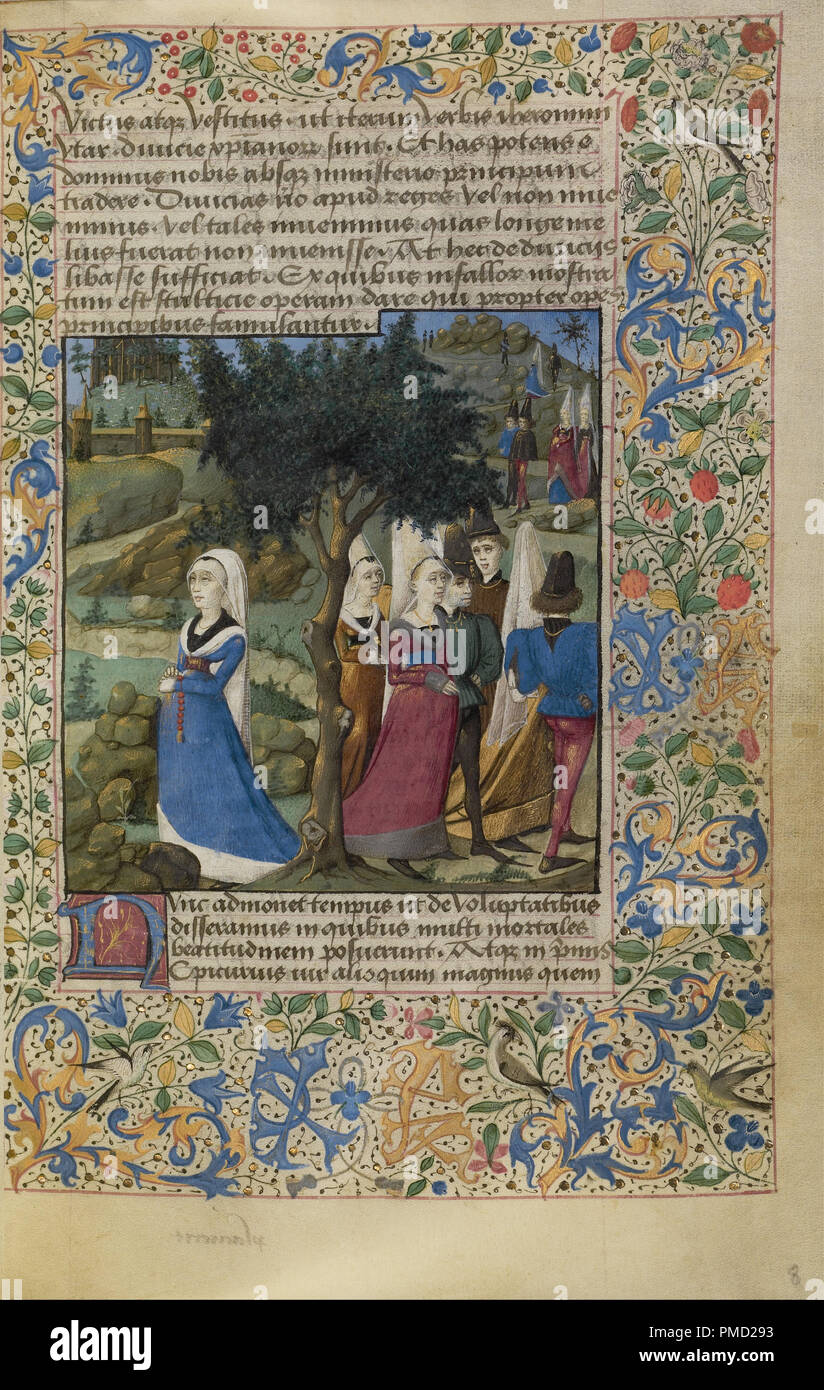 Victus atqz vestitus. ut iterum verbis iheronimi
vtar. diuicie xpianorz sunt. Et has potens ē
dominus nobis absqz ministerio principum
tradere. Diuicias nō apud reges vel non inue
nimus. vel tales inuenimus quas longe me
lius fuerat non inuenisse. At hec de diuicijs
libasse sufficiat. Ex quibus ni fallor mostra
tum est stulticie operam dare qui propter opes
principibus famulantur.
Nunc admonet tempus ut de voluptatibus
disseramus in quibus multi mortales
beatitudinem posuerunt. Atqz in
Epicurius uir alioquim magnus quem
8
alamy
a
a
a
a
alamy stock photo
PMD293
www.alamy.com